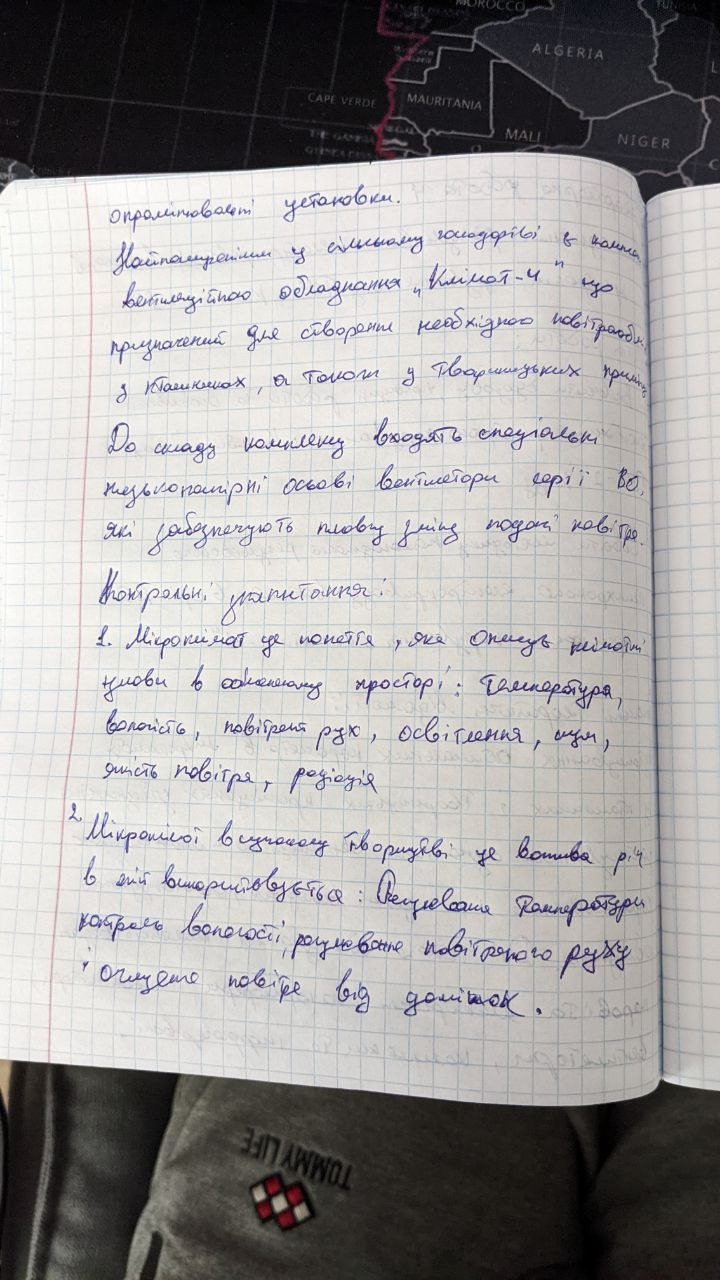 MOROCCO
TUNISIA
ALGERIA
CAPE VERDE
MAURITANIA
MALI
NIGER
THE GAMBIA
GUINEA
установки.
Найпоширенішим у сільському господарстві є
вентиляційного обладнання „Клімат-4" що
призначений для створення необхідного
у пташниках, а також у тваринницьких
До складу комплексу входять спеціальні
низьконапірні осьові вентилятори серії ВО,
які забезпечують плавну зміну подачі повітря.
Контрольні запитання:
1. Мікроклімат це поняття, яке описує кліматні
умови в обмеженому просторі: температура,
вологість, повітряний рух, освітлення, шум,
якість повітря, радіація
2. Мікроклімат в сучасному це важлива річ
в якій використовується: Регулювання температури
контроль вологості, регулювання повітряного руху
і очищення повітря від домішок.
TOMMY LIFE